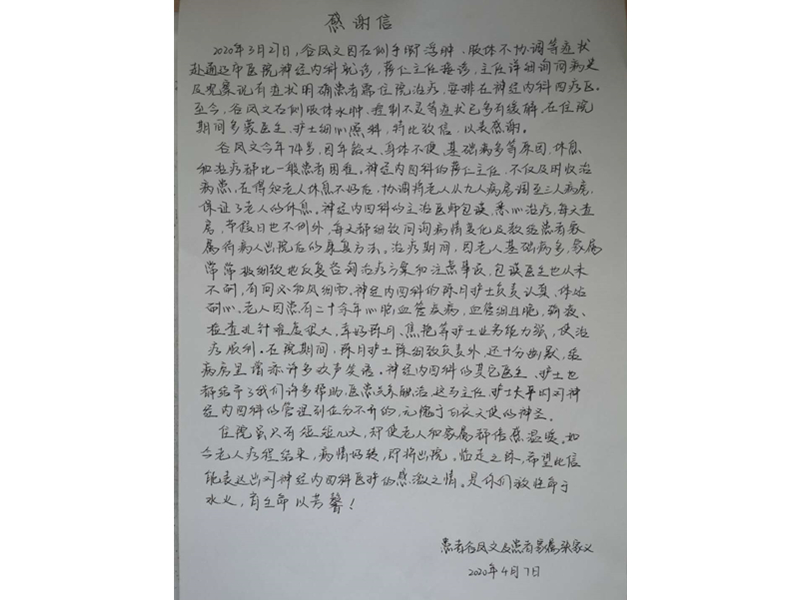 感谢信
2020年3月27日,谷凤文因右侧手脚浮肿、肢体不协调等症状
赴通辽市医院神经内科就诊,蒋仁主任接诊,主任详细询问病史
及观察现有症状明确患者需住院治疗,安排在神经内科四疗区。
至今,谷凤文右侧肢体水肿、控制不足等症状已多有缓解。在住院
期间多蒙医生、护士细心照料,特此致信,以表感谢。
谷凤文今年74岁,因年龄大、身体不便、基础病多等原因,休息
和治疗都比一般患者困难。神经内四科的蒋仁主任,不仅及时收治
病患,在得知老人休息不好后,协调将老人从九人病房调至三人病房,
保证了老人的休息。神经内四科的主治医师包误,悉心治疗,每天查
房,节假日也不例外,每天都细致问询病情变化及教给患者家
属何病人出院后的康复方法。治疗期间,因老人基础病多,家属
常常极细致地反复咨询治疗方案和注意事项,包误医生也从未
不耐,有问必和风细雨。神经内四科的陈月护士负责认真,体贴
耐心。老人因患有二十余年心脑血管疾病,血管细且脆,输液、
检查扎针难度很大,幸好陈月、焦艳等护士业务能力强,使治
疗顺利。在院期间,陈月护士除细致负责外,还十分幽默,给
病房里增添许多欢声笑语。神经内四科的其它医生、护士也
都给予了我们许多帮助,医患关系融洽,这与主任、护士长平时对神
经内四科的管理到位分不开的,无愧于白衣天使的神圣。
住院虽只有短短几天,却使老人和家属都倍感温暖。如
今老人疗程结束,病情好转,即将出院。临走之际,希望此信
能表达出对神经内四科医护的感激之情。是你们救性命于
水火,育生命以芳馨!
患者谷凤文及患者家属张家义
2020年4月7日